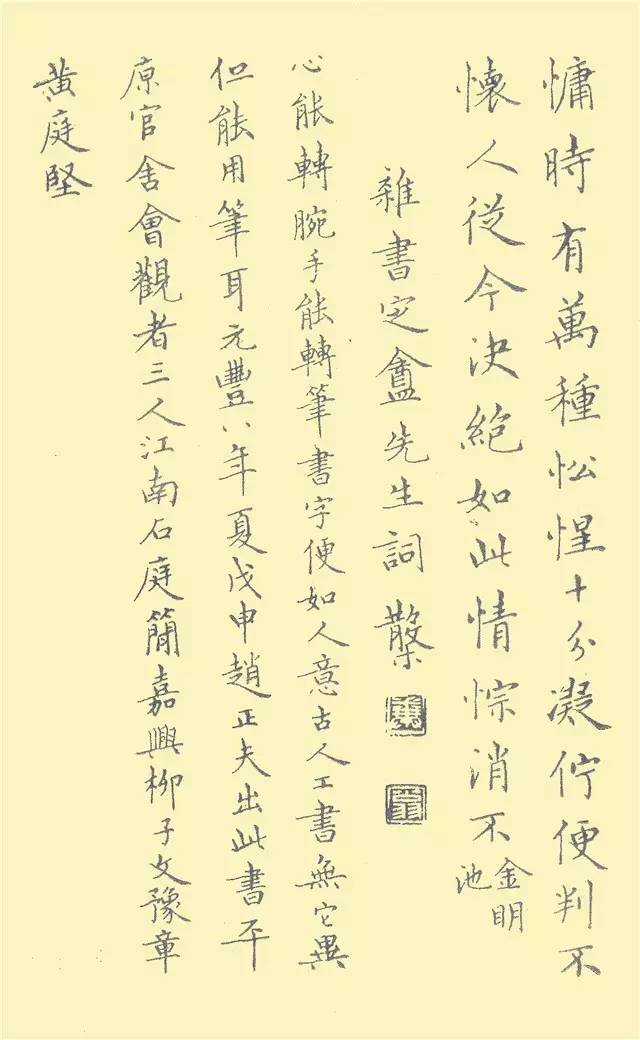 慵時有萬種忪惺十分凝佇便判不
懷人從今決絕如此情悰消不 金明池
雜書定盦先生詞
心能轉腕手能轉筆書字便如人意古人工書無它異
但能用筆耳元豐八年夏戊申趙正夫出此書平
原官舍會觀者三人江南石庭簡嘉興柳子文豫章
黃庭堅